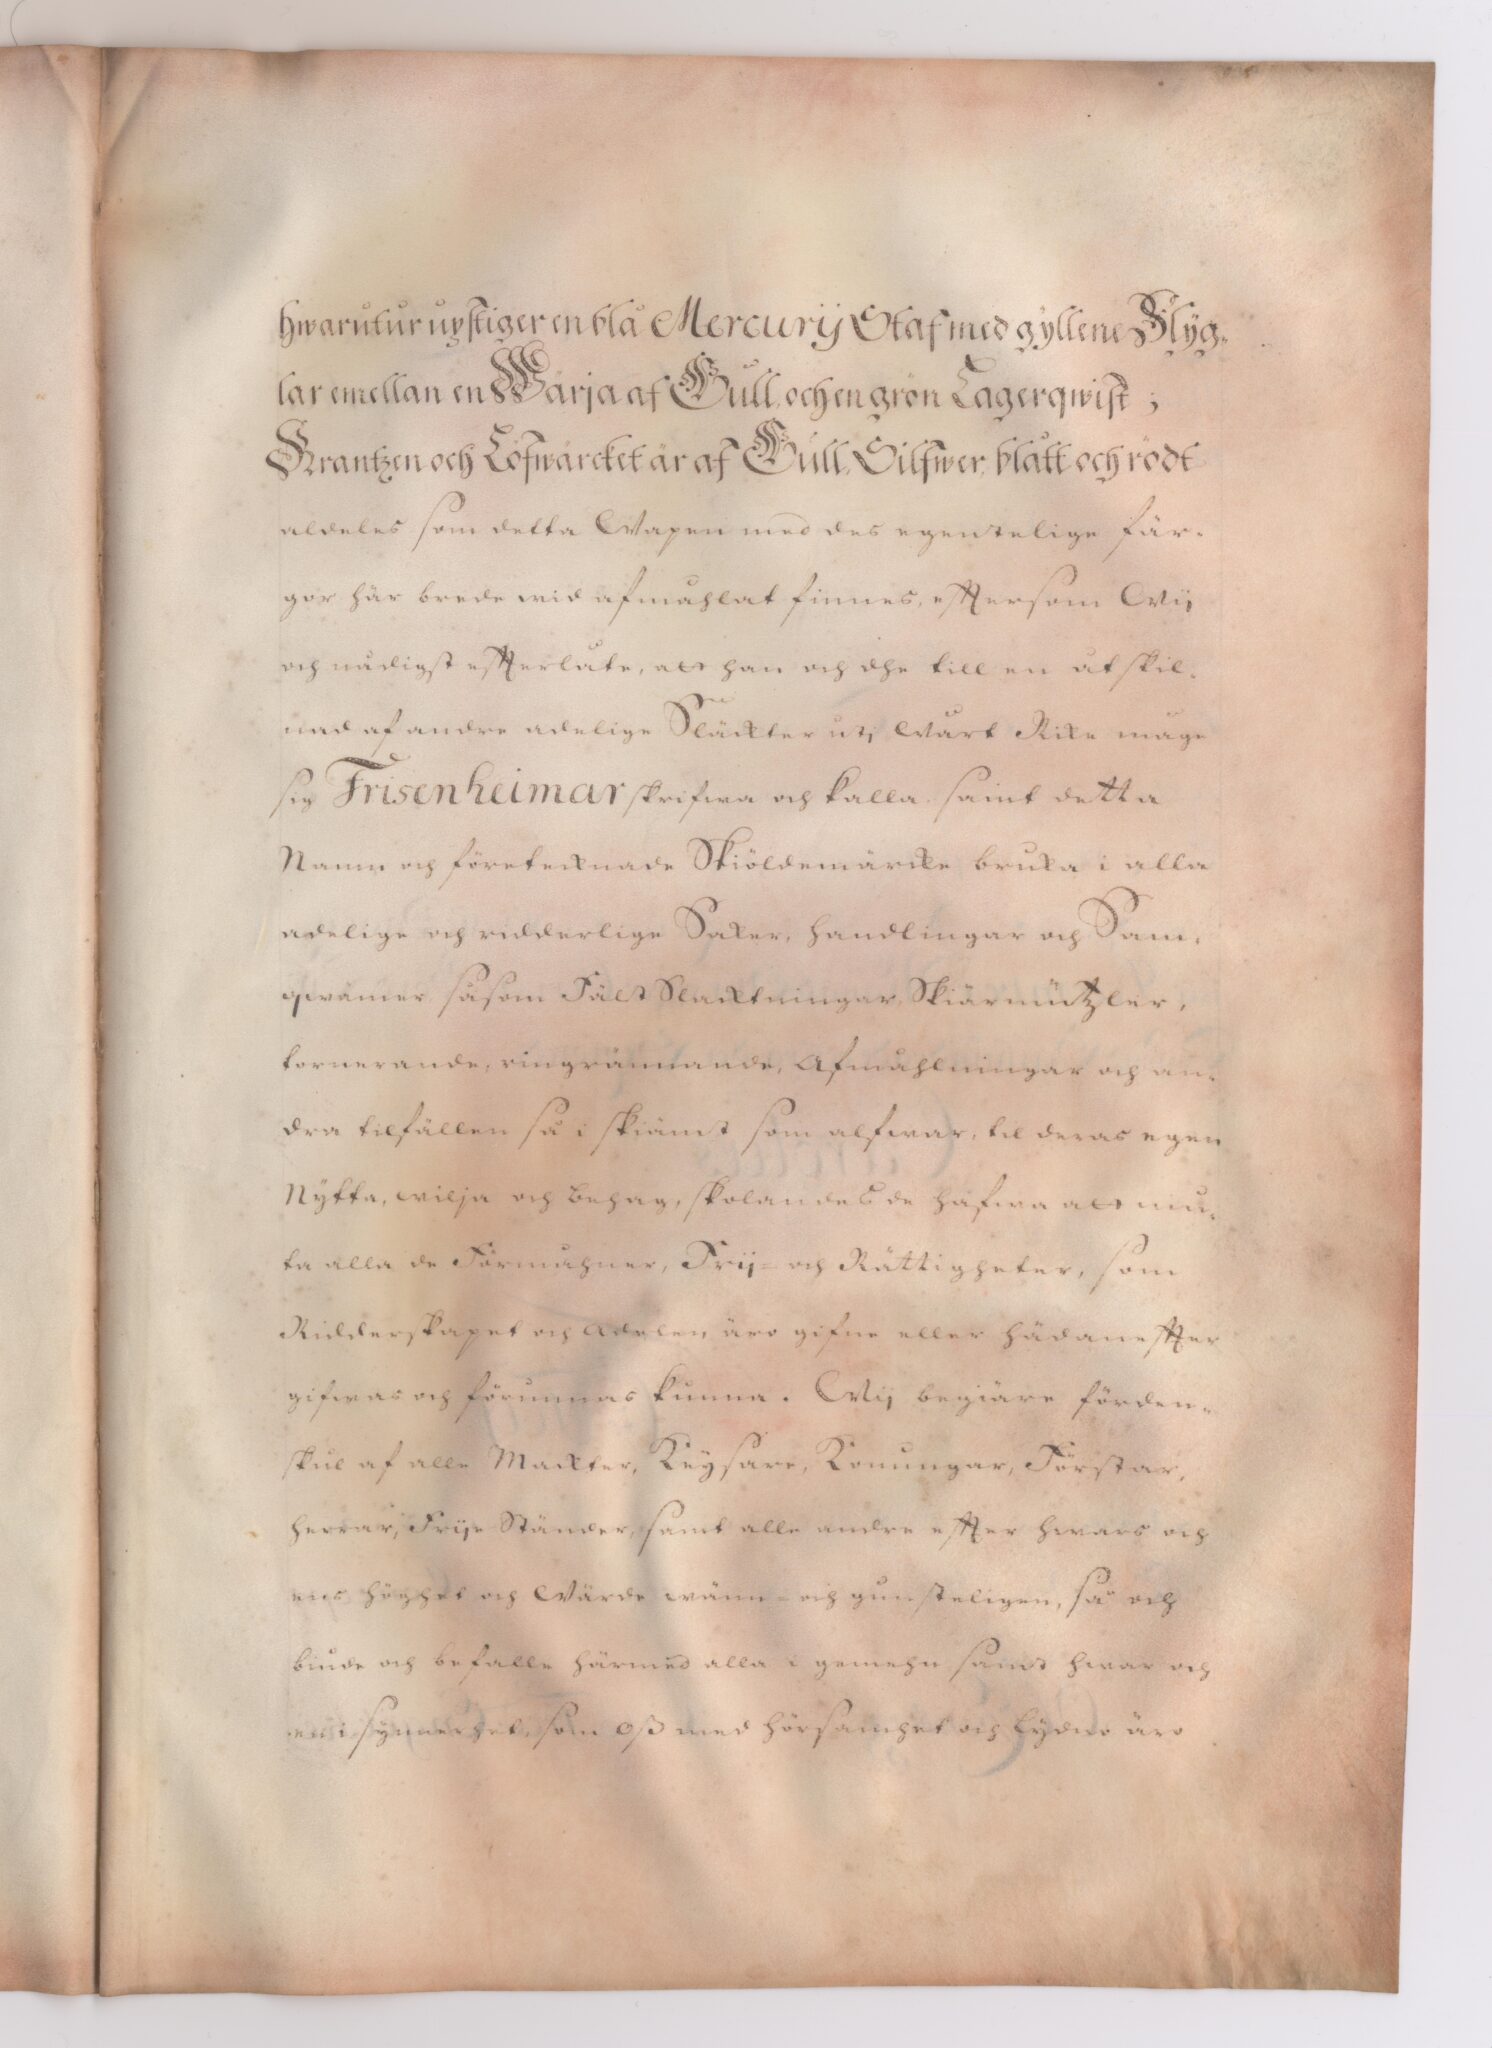 hwarutur upstiger en blå Mercurij Staf med gyllene Flyg-
lar emellan en Wärja af Gull, och en grön Lagerqwist;
Krantzen och Löfwärcket är af Gull, Silfwer, blått och rödt
aldeles som detta Wapen med des egentelige fär-
gor här brede wid afmåhlat finnes, efftersom Wij
och nådigst effterlåte, att han och dhe till en åtskil-
nad af andre adelige Släckter uti Wårt Rike måge
sig Frisenheimar skrifwa och kalla samt detta
Namn och företecknade Skiöldemärcke bruka i alla
adelige och ridderlige Saker, handlingar och Sam-
qwämer såsom Fält Slacktningar, Skiärmützler,
tornerande, ringrännande, Afmåhlningar och an-
dra tilfällen så i skiämt som alfwar, til deras egen
Nytta, wilja och Behag, skolandes de hafwa att niu-
ta alla de Förmåhner, Frij- och Rättigheter, som
Ridderskapet och Adelen äro gifne eller hädaneffter
gifwas och förunnas kunna. Wij begiäre förden-
skul af alle Mackter, Keysare, Konungar, Förstar,
herrar, Frije Ständer, samt alle andre effter hwars och
ens höghet och Wärde wänn- och gunsteligen, så och
biude och befalle härmed alla i gemehn samt hwar och
en i synnerhet, som Oß med hörsamhet och Lydno äro